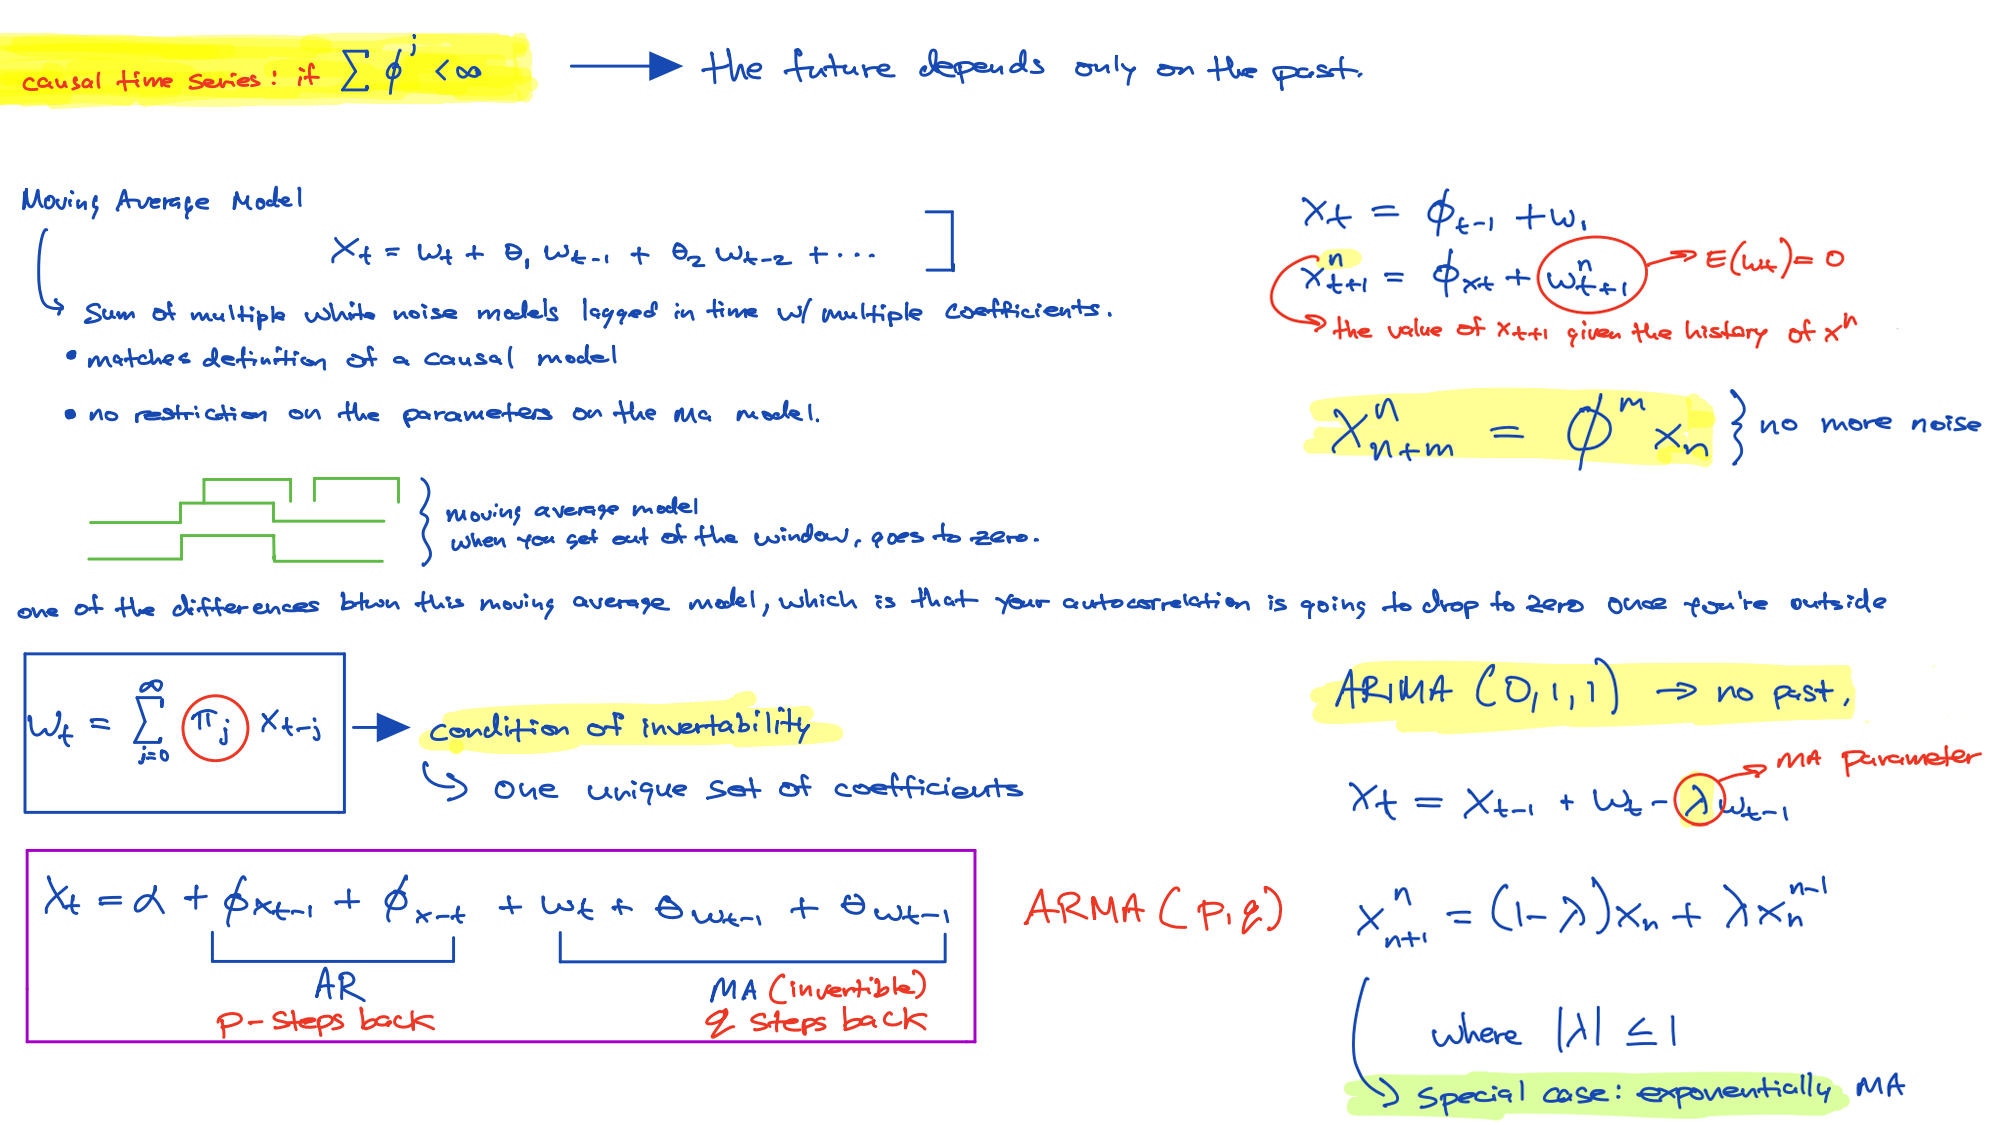 causal time series: if ∑ ϕ^j < ∞ → the future depends only on the past.
Moving Average Model
X_t = w_t + θ_1 w_{t-1} + θ_2 w_{t-2} + ...
Sum of multiple white noise models lagged in time w/ multiple coefficients.
• matches definition of a causal model
• no restriction on the parameters on the MA model.
moving average model
when you get out of the window, goes to zero.
x_t = ϕ_{t-1} + w_1
x_{t+1}^n = ϕ_{xt} + w_{t+1}^n → E(w_t) = 0
the value of x_{t+1} given the history of x^n
X_{n+m}^n = ϕ^m x_n } no more noise
one of the differences btwn this moving average model, which is that your autocorrelation is going to drop to zero once you're outside
w_t = ∑_{j=0}^∞ π_j x_{t-j} → condition of invertability
one unique set of coefficients
X_t = α + ϕ_{xt-1} + ϕ_{x-t} + w_t + θ_{wt-1} + θ_{wt-1}
AR
p-steps back
MA (invertible)
q steps back
ARMA (p,q)
ARIMA (0,1,1) → no past.
MA parameter
x_t = x_{t-1} + w_t - λw_{t-1}
x_{n+1}^n = (1-λ)x_n + λx_n^{n-1}
where |λ| ≤ 1
special case: exponentially MA